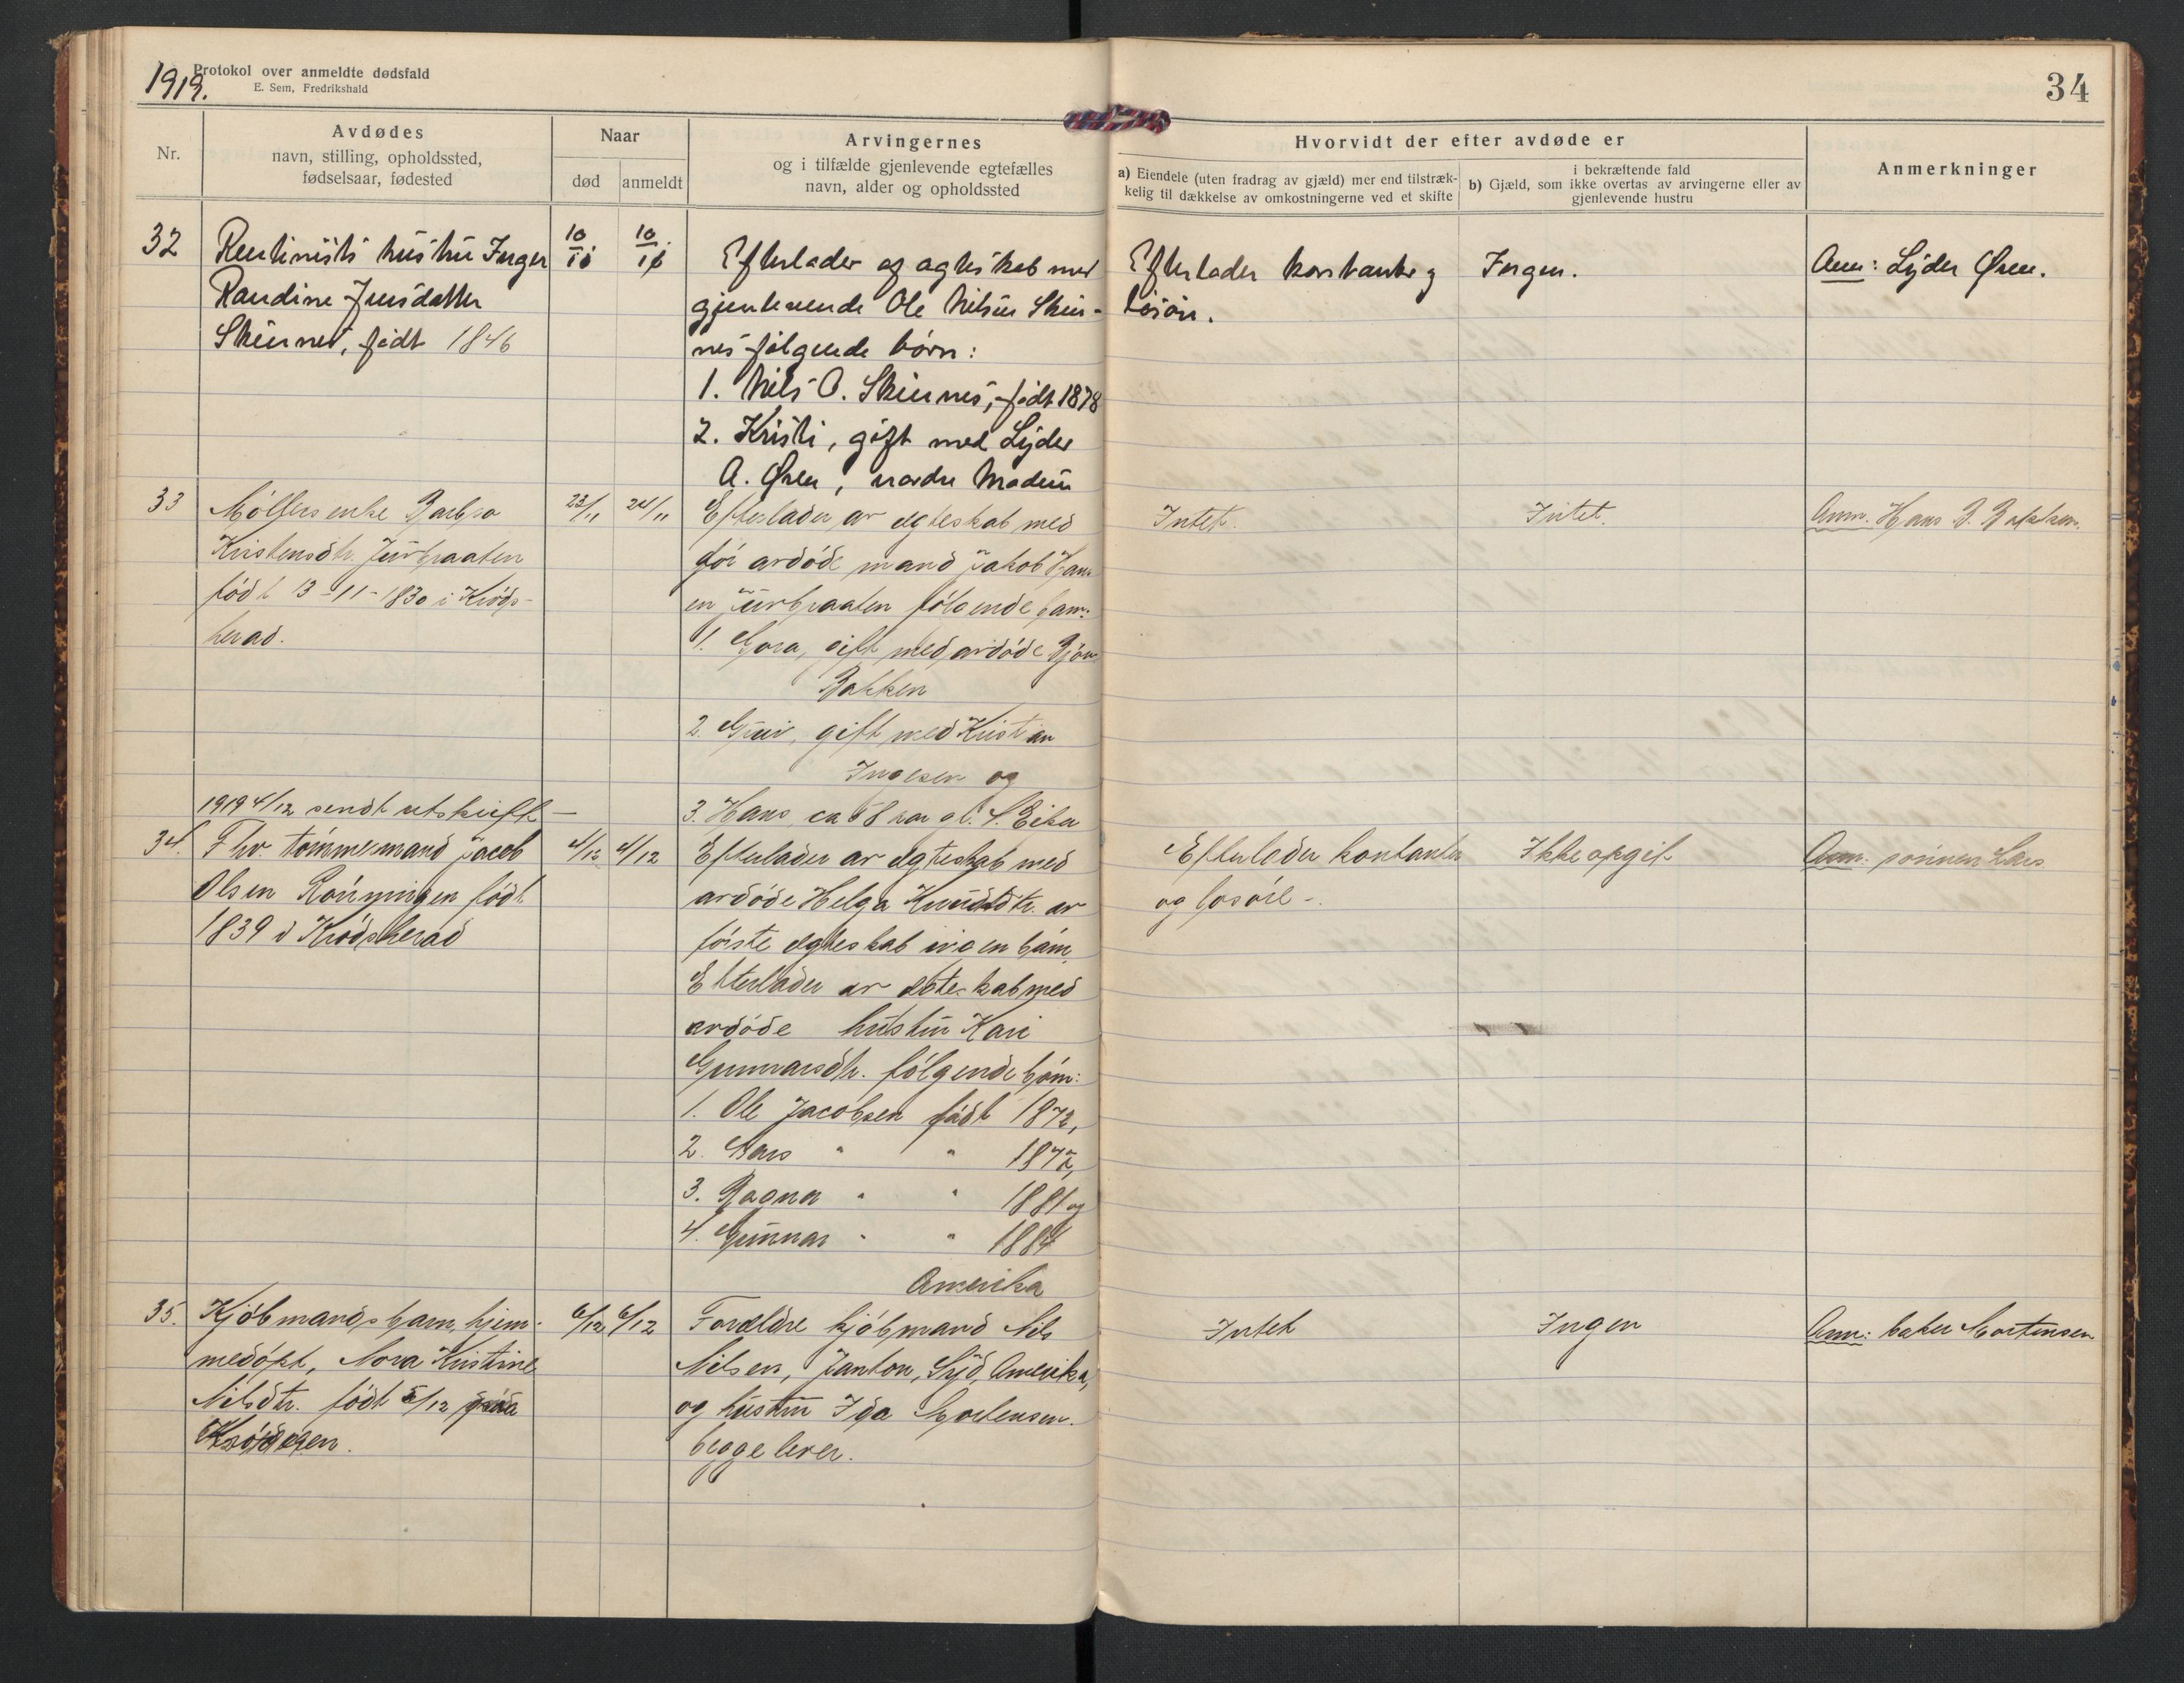 1919.
Protokol over anmeldte dødsfald
E. Sem, Fredrikshald
34
Nr.
Avdødes
navn, stilling, opholdssted,
fødselsaar, fødested
Naar
død
anmeldt
Arvingernes
og i tilfælde gjenlevende egtefælles
navn, alder og opholdssted
Hvorvidt der efter avdøde er
a) Eiendele (uten fradrag av gjæld) mer end tilstræk-
kelig til dækkelse av omkostningerne ved et skifte
i bekræftende fald
b) Gjæld, som ikke overtas av arvingerne eller av
gjenlevende hustru
Anmerkninger
32
Rentenists hustru Inger
Randine Jensdatter
Skinnes, født 1846
10/10
10/10
Efterlader af ægteskab med
gjenlevende Ole Nilsen Skin-
nes følgende børn:
1. Nils O. Skinnes, født 1878
2. Kristi, gift med Lyder
A. Øren, nordre Modum
Efterlader kontanter og
løsøre.
Ingen.
Anm: Lyder Øren.
33
Møllers enke Barbro
Kristensdtr.
født 13-11-1830 i Kröds-
herad.
23/11
24/11
Efterlader av egteskab med
før avdøde mand Jakob Hans
en følgende barn:
1. gift med avdøde Bjørn
Bakken
2. Guri, gift med Kristian
Ingesen og
3. Hans ca 58 aar gl. S. Eiker
Intet.
Intet.
Anm. Hans B. Bakken.
1919 4/12 sendt utskrift —
34.
Fhv. tømmermand Jacob
Olsen Rønningen født
1839 i Krødsherad
4/12
4/12
Efterlader av egteskab med
avdøde Helga Knudsdtr. av
første egteskab ingen barn.
Efterlader av egteskab med
avdøde hustru Kari
Gunnarsdtr. følgende børn:
1. Ole Jacobsen født 1872,
2. Lars " "
3. Ragna " " 1881 og
4. Gunnar " " 1884
Amerika
Efterlader kontanter
og løsøre -.
Ikke opgit
Anm: sønnen Lars
35.
Kjøbmands barn, hjem-
medøpt, Nora Kristine
Nilsdtr. født 5/12 paa
Krøderen.
6/12
6/12
Forældre kjøbmand Nils
Nilsen, Janton, Syd, Amerika,
og hustru Ida Mortensen.
begge lever.
Intet
Ingen
Anm: baker Mortensen